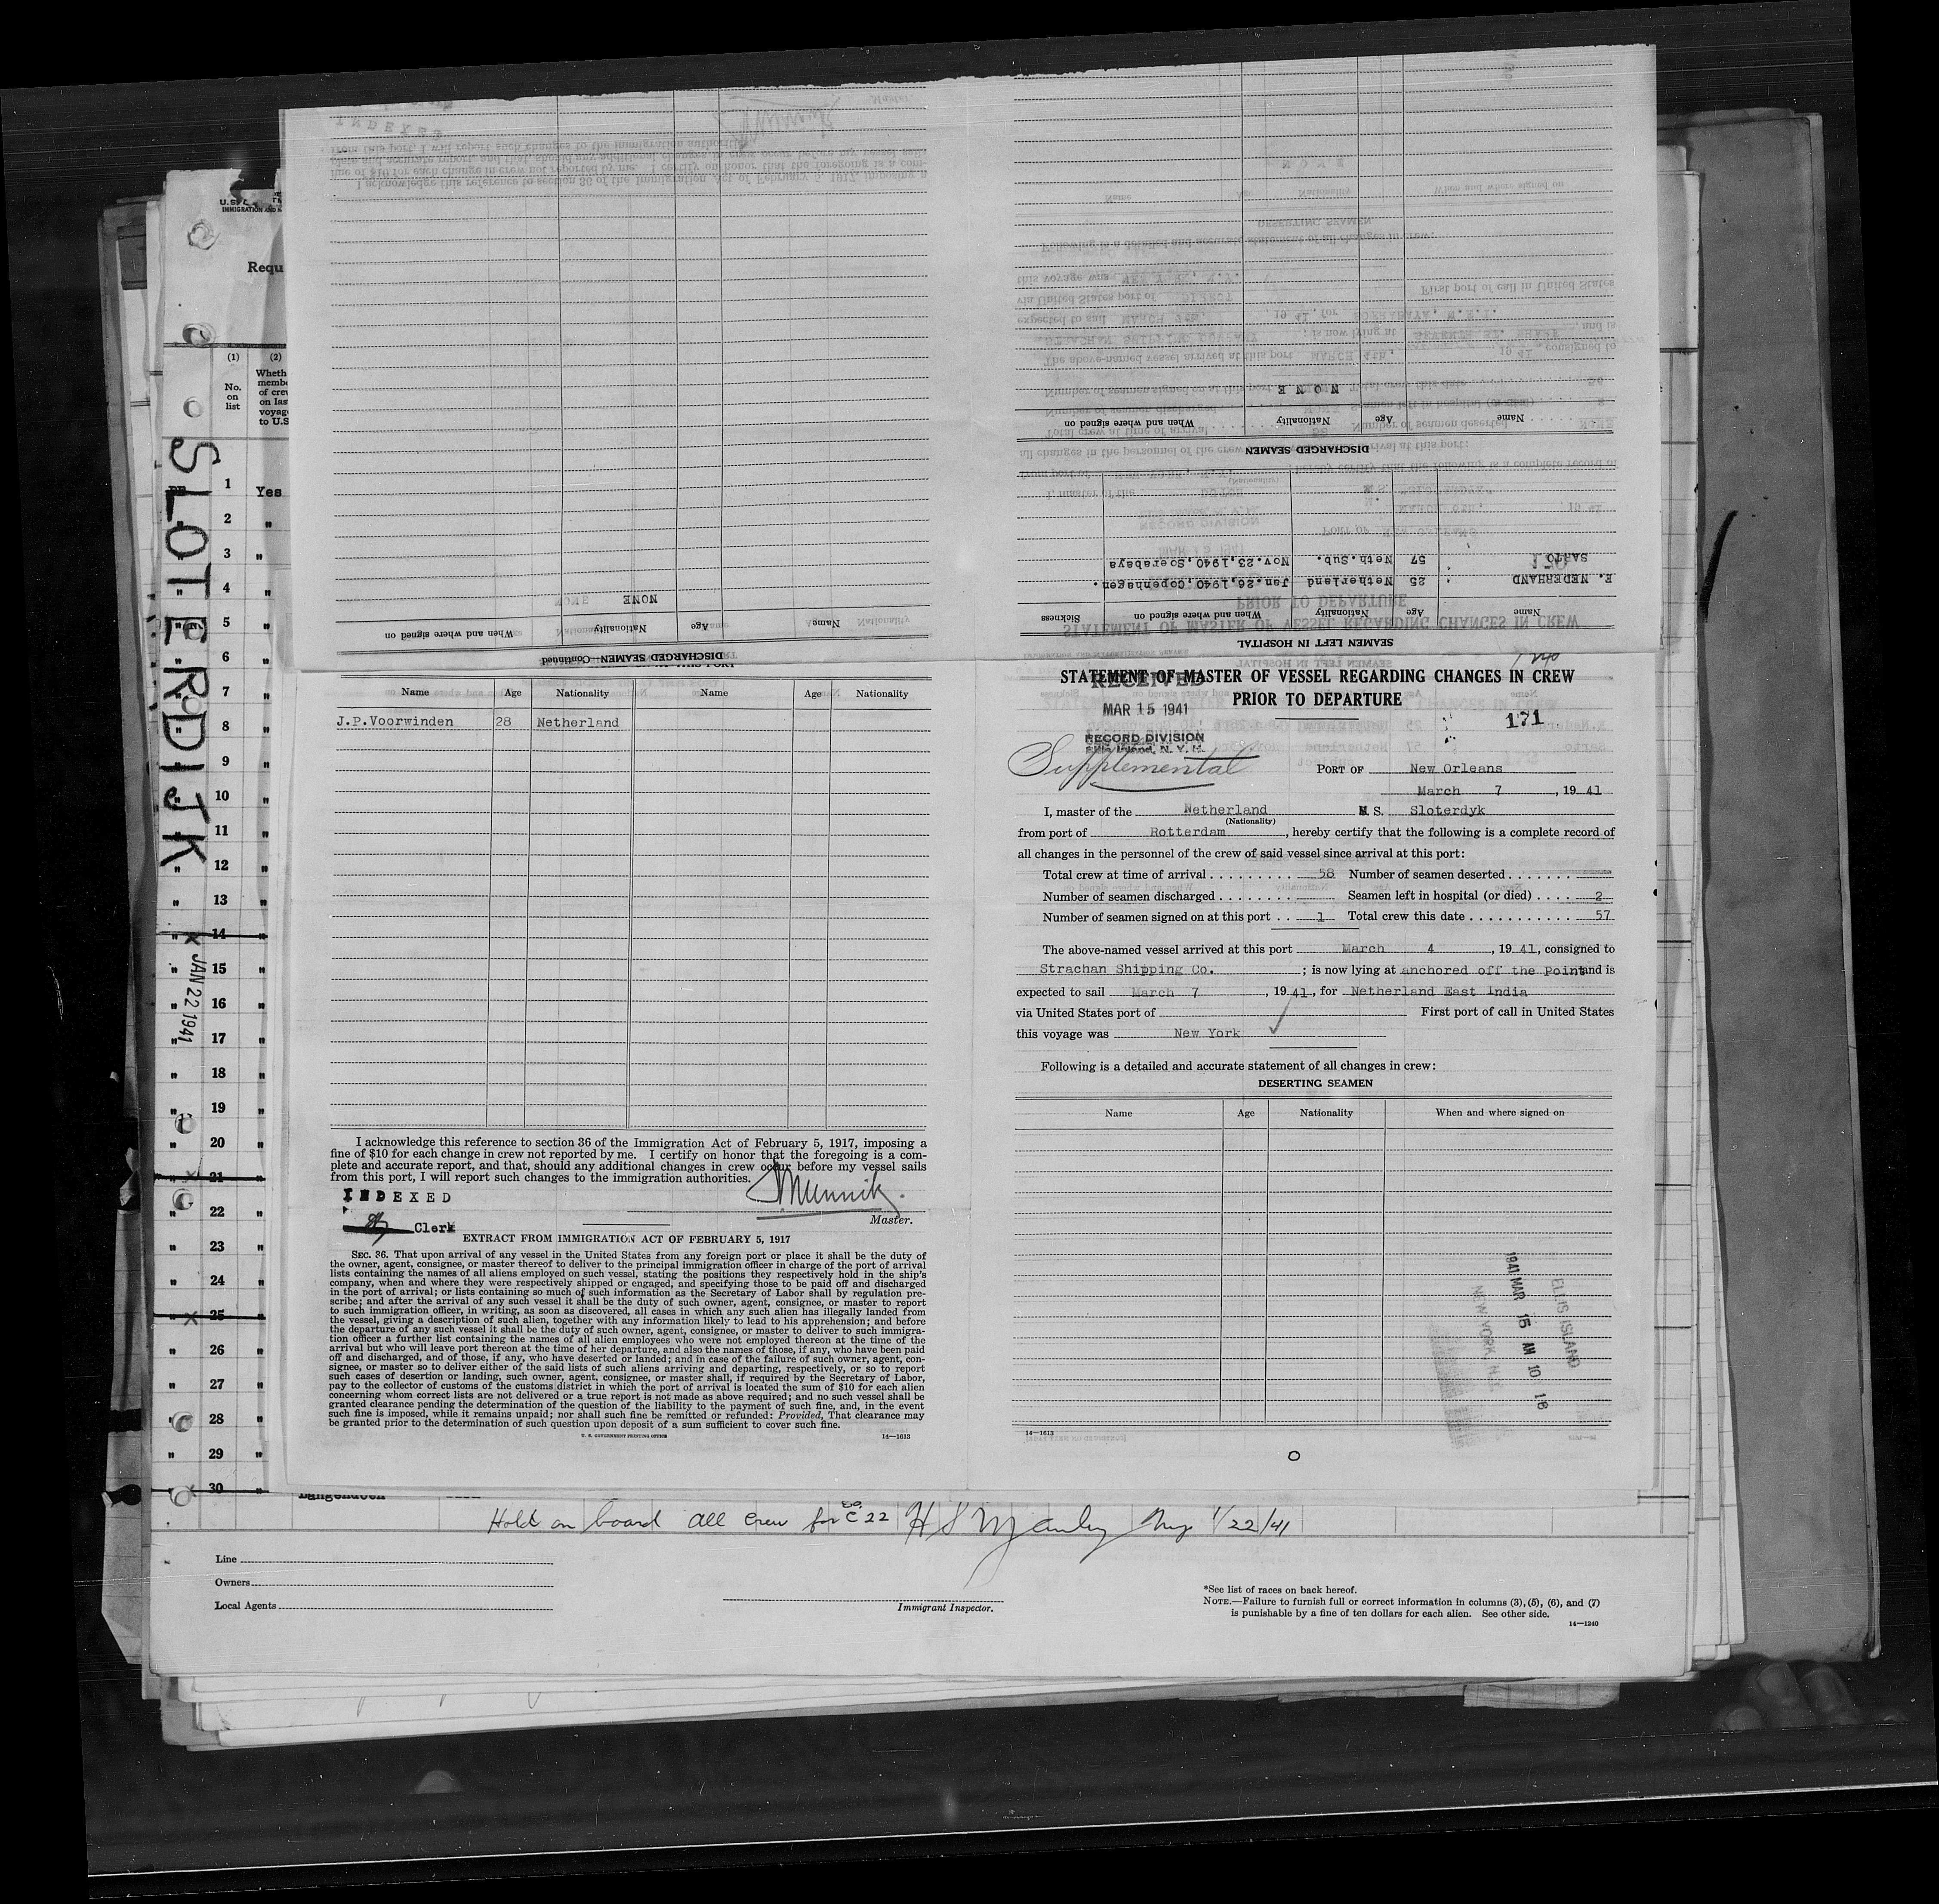 IMMIGRATION AND N
Requ
(1)
(2)
No.
on
list
Wheth
membe
of crew
on las
voyage
to U.S
SLOTERDIJK
JAN 22 1941
1 Yes
2 "
3 "
4 "
5 "
6 "
7 "
8 "
9 "
10 "
11 "
12 "
13 "
14 "
15 "
16 "
17 "
18 "
19 "
20 "
21 "
22 "
23 "
24 "
25 "
26 "
27 "
28 "
29 "
30 "
DISCHARGED SEAMEN—Continued
Name Age Nationality When and where signed on
NONE
SEAMEN LEFT IN HOSPITAL
Name Age Nationality When and where signed on Sickness
F. NEDERHAND 25 Netherland Jan.26,1940,Copenhagen.
SARTO 57 Neth.Sub. Nov.23,1940,Soerabaya
DISCHARGED SEAMEN
Name Age Nationality When and where signed on
NONE
Name Age Nationality Name Age Nationality
J.P.Voorwinden 28 Netherland
I acknowledge this reference to section 36 of the Immigration Act of February 5, 1917, imposing a
fine of $10 for each change in crew not reported by me. I certify on honor that the foregoing is a com-
plete and accurate report, and that, should any additional changes in crew occur before my vessel sails
from this port, I will report such changes to the immigration authorities.
INDEXED
Clerk
Master.
EXTRACT FROM IMMIGRATION ACT OF FEBRUARY 5, 1917
SEC. 36. That upon arrival of any vessel in the United States from any foreign port or place it shall be the duty of
the owner, agent, consignee, or master thereof to deliver to the principal immigration officer in charge of the port of arrival
lists containing the names of all aliens employed on such vessel, stating the positions they respectively hold in the ship's
company, when and where they were respectively shipped or engaged, and specifying those to be paid off and discharged
in the port of arrival; or lists containing so much of such information as the Secretary of Labor shall by regulation pre-
scribe; and after the arrival of any such vessel it shall be the duty of such owner, agent, consignee, or master to report
to such immigration officer, in writing, as soon as discovered, all cases in which any such alien has illegally landed from
the vessel, giving a description of such alien, together with any information likely to lead to his apprehension; and before
the departure of any such vessel it shall be the duty of such owner, agent, consignee, or master to deliver to such immigra-
tion officer a further list containing the names of all alien employees who were not employed thereon at the time of the
arrival but who will leave port thereon at the time of her departure, and also the names of those, if any, who have been paid
off and discharged, and of those, if any, who have deserted or landed; and in case of the failure of such owner, agent, con-
signee, or master so to deliver either of the said lists of such aliens arriving and departing, respectively, or so to report
such cases of desertion or landing, such owner, agent, consignee, or master shall, if required by the Secretary of Labor,
pay to the collector of customs of the customs district in which the port of arrival is located the sum of $10 for each alien
concerning whom correct lists are not delivered or a true report is not made as above required; and no such vessel shall be
granted clearance pending the determination of the question of the liability to the payment of such fine, and, in the event
such fine is imposed, while it remains unpaid; nor shall such fine be remitted or refunded: Provided, That clearance may
be granted prior to the determination of such question upon deposit of a sum sufficient to cover such fine.
U. S. GOVERNMENT PRINTING OFFICE 14—1613
STATEMENT OF MASTER OF VESSEL REGARDING CHANGES IN CREW
PRIOR TO DEPARTURE
RECEIVED
MAR 15 1941
RECORD DIVISION
Ellis Island, N. Y. H.
171
Supplemental
PORT OF New Orleans
March 7, 1941
I, master of the Netherland M S. Sloterdyk
(Nationality)
from port of Rotterdam, hereby certify that the following is a complete record of
all changes in the personnel of the crew of said vessel since arrival at this port:
Total crew at time of arrival 58 Number of seamen deserted
Number of seamen discharged Seamen left in hospital (or died) 2
Number of seamen signed on at this port 1 Total crew this date 57
The above-named vessel arrived at this port March 4, 1941, consigned to
Strachan Shipping Co.; is now lying at anchored off the Point and is
expected to sail March 7, 1941, for Netherland East India
via United States port of First port of call in United States
this voyage was New York
Following is a detailed and accurate statement of all changes in crew:
DESERTING SEAMEN
Name Age Nationality When and where signed on
1941 MAR 15 AM 10 16
ELLIS ISLAND
NEW YORK H.
14—1613
Hold on board all crew for EO C 22 H S Manley Insp 1/22/41
Line
Owners
Local Agents
Immigrant Inspector.
*See list of races on back hereof.
NOTE.—Failure to furnish full or correct information in columns (3), (5), (6), and (7)
is punishable by a fine of ten dollars for each alien. See other side.
14—1240